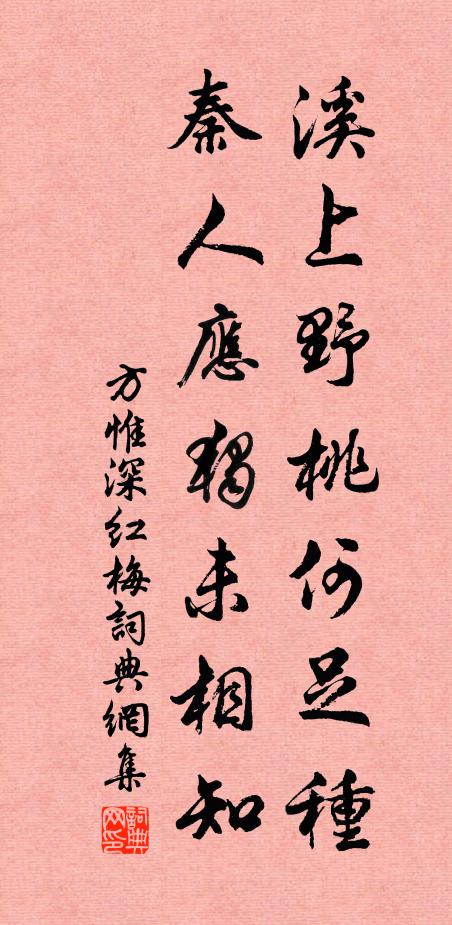 溪上野桃何足種
秦人應獨未相知
方惟深紅梅詞典網集
詞典网印